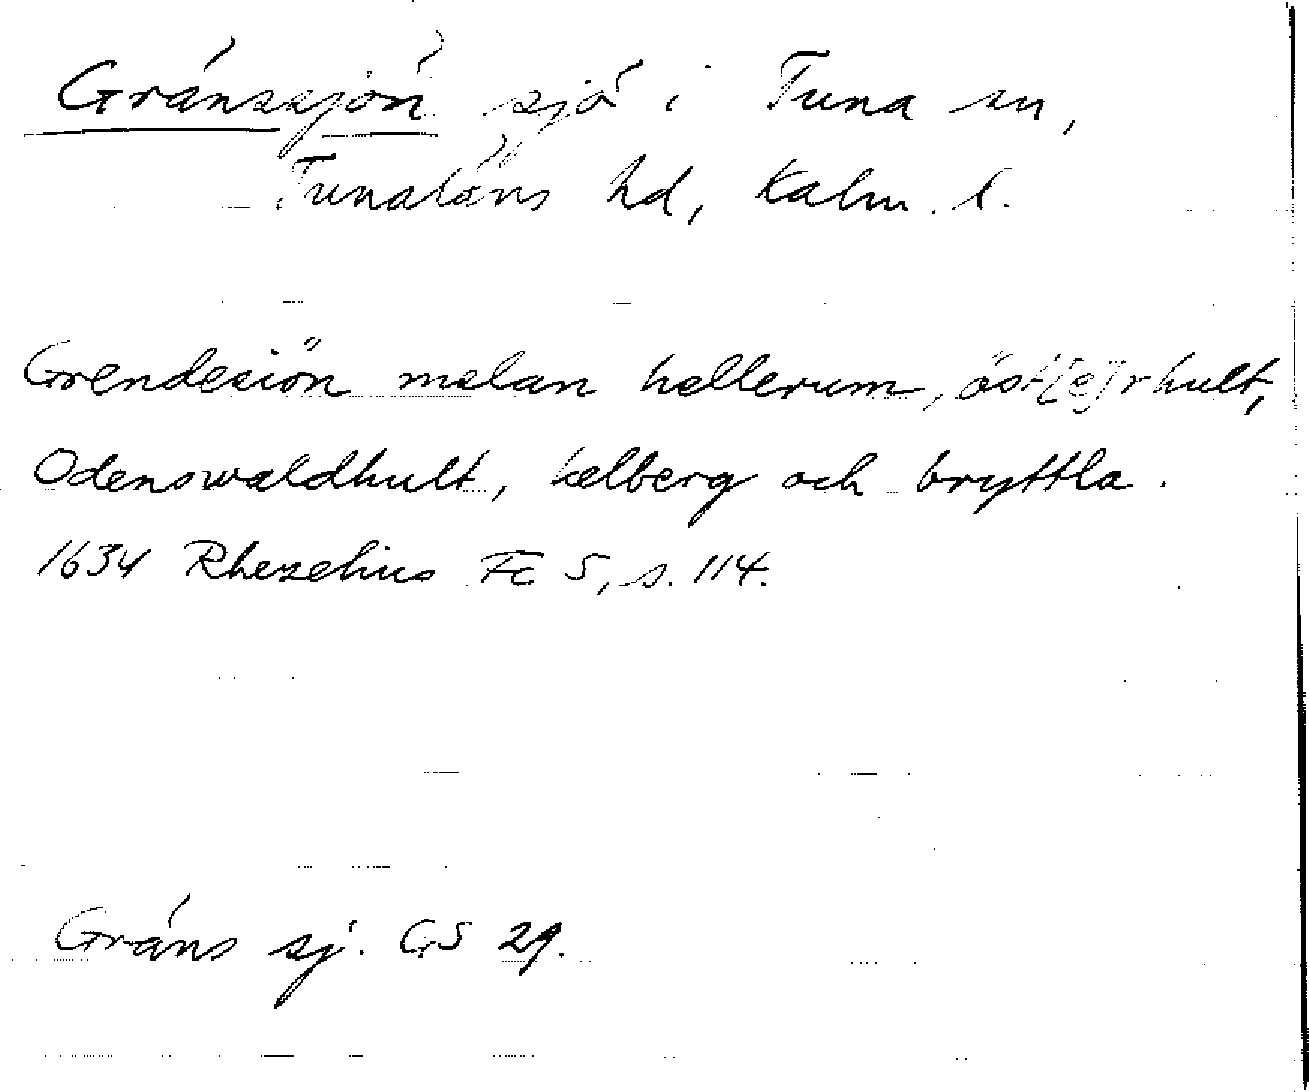 Gränssjön sjö i Tuna sn,
Tunaläns hd, Kalm. l.
Grendesiön melan hellerum, öst[e]rhult,
Odenswaldhult, kelberg och bryttla.
1634 Rhezelius Fc 5, s. 114.
Gräns sj. GS 29.